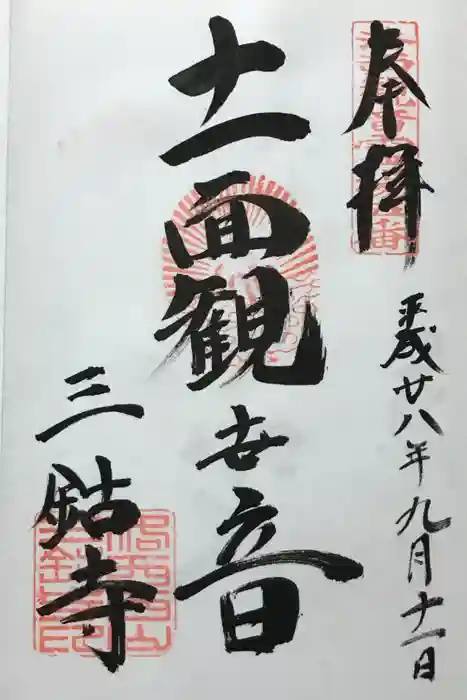 奉拝
平成廿八年九月十一日
十一面観世音
三鈷寺